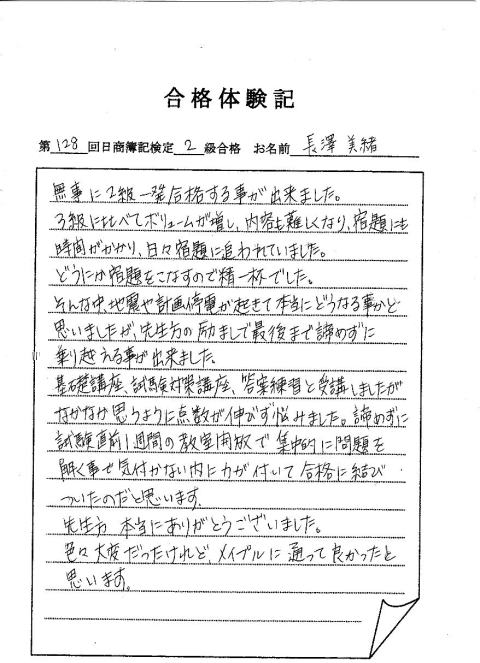 合格体験記
第128回日商簿記検定2級合格 お名前 長澤 美緒
無事に2級一発合格する事が出来ました。
3級に比べてボリュームが増し、内容も難しくなり、宿題にも
時間がかかり、日々宿題に追われていました。
どうにか宿題をこなすので精一杯でした。
そんな中、地震や計画停電が起きて本当にどうなる事かと
思いましたが、先生方の励ましで最後まで諦めずに
乗り越える事が出来ました。
基礎講座、試験対策講座、答案練習と受講しましたが
なかなか思うように点数が伸びず悩みました。諦めずに
試験直前1週間の教室開放で集中的に問題を
解く事で気付かない内に力が付いて合格に結び
ついたのだと思います。
先生方 本当にありがとうございました。
色々大変だったけれど、メイプルに通って良かったと
思います。